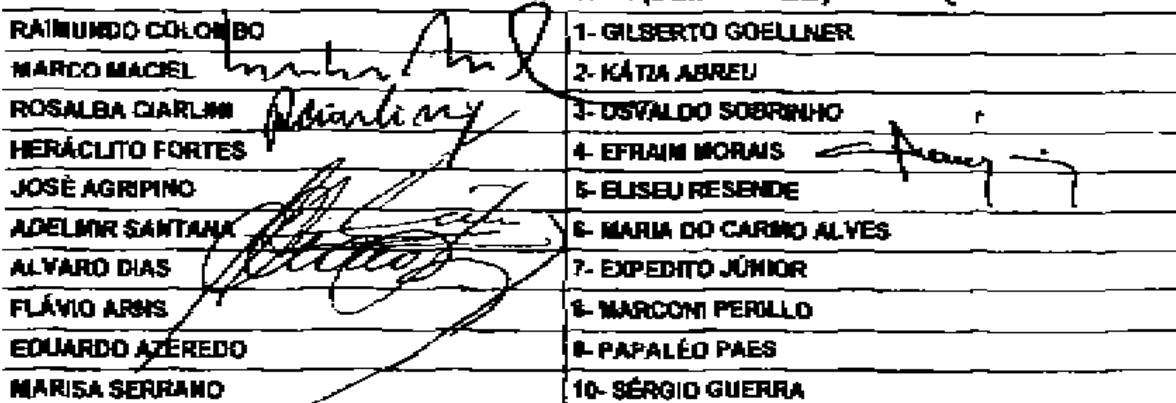 RAIMUNDO COLOMBO 1- GILBERTO GOELLNER
MARCO MACIEL 2- KÁTIA ABREU
ROSALBA CIARLINI 3- OSVALDO SOBRINHO
HERÁCLITO FORTES 4- EFRAIM MORAIS
JOSÉ AGRIPINO 5- ELISEU RESENDE
ADELMIR SANTANA 6- MARIA DO CARMO ALVES
ALVARO DIAS 7- EXPEDITO JÚNIOR
FLÁVIO ARNS 8- MARCONI PERILLO
EDUARDO AZEREDO 9- PAPALÉO PAES
MARISA SERRANO 10- SÉRGIO GUERRA